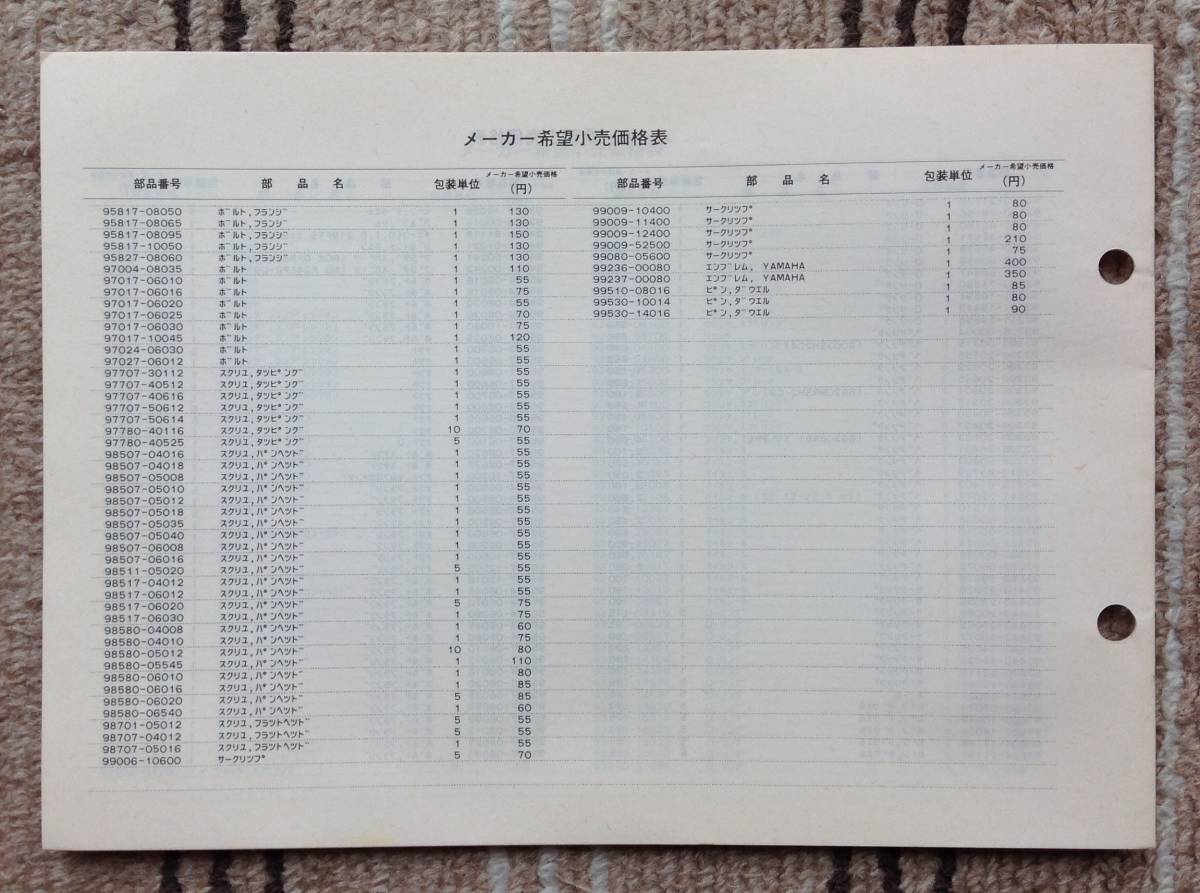 メーカー希望小売価格表
部品番号 部品名 包装単位 メーカー希望小売価格(円)
95817-08050 ボルト,フランジ 1 130
95817-08065 ボルト,フランジ 1 130
95817-08095 ボルト,フランジ 1 150
95817-10050 ボルト,フランジ 1 130
95827-08060 ボルト,フランジ 1 130
97004-08035 ボルト 1 110
97017-06010 ボルト 1 55
97017-06016 ボルト 1 75
97017-06020 ボルト 1 55
97017-06025 ボルト 1 70
97017-06030 ボルト 1 75
97017-10045 ボルト 1 120
97024-06030 ボルト 1 55
97027-06012 ボルト 1 55
97707-30112 スクリユ,タツピング 1 55
97707-40512 スクリユ,タツピング 1 55
97707-40616 スクリユ,タツピング 1 55
97707-50612 スクリユ,タツピング 1 55
97707-50614 スクリユ,タツピング 1 55
97780-40116 スクリユ,タツピング 10 70
97780-40525 スクリユ,タツピング 5 55
98507-04016 スクリユ,パンヘツド 1 55
98507-04018 スクリユ,パンヘツド 1 55
98507-05008 スクリユ,パンヘツド 1 55
98507-05010 スクリユ,パンヘツド 1 55
98507-05012 スクリユ,パンヘツド 1 55
98507-05018 スクリユ,パンヘツド 1 55
98507-05035 スクリユ,パンヘツド 1 55
98507-05040 スクリユ,パンヘツド 1 55
98507-06008 スクリユ,パンヘツド 1 55
98507-06016 スクリユ,パンヘツド 1 55
98511-05020 スクリユ,パンヘツド 5 55
98517-04012 スクリユ,パンヘツド 1 55
98517-06012 スクリユ,パンヘツド 1 55
98517-06020 スクリユ,パンヘツド 5 75
98517-06030 スクリユ,パンヘツド 1 75
98580-04008 スクリユ,パンヘツド 1 60
98580-04010 スクリユ,パンヘツド 1 75
98580-05012 スクリユ,パンヘツド 10 80
98580-05545 スクリユ,パンヘツド 1 110
98580-06010 スクリユ,パンヘツド 1 80
98580-06016 スクリユ,パンヘツド 1 85
98580-06020 スクリユ,パンヘツド 5 85
98580-06540 スクリユ,パンヘツド 1 60
98701-05012 スクリユ,フラツトヘツド 5 55
98707-04012 スクリユ,フラツトヘツド 5 55
98707-05016 スクリユ,フラツトヘツド 1 55
99006-10600 サークリツプ 5 70
部品番号 部品名 包装単位 メーカー希望小売価格(円)
99009-10400 サークリツプ 1 80
99009-11400 サークリツプ 1 80
99009-12400 サークリツプ 1 80
99009-52500 サークリツプ 1 210
99080-05600 サークリツプ 1 75
99236-00080 エンブレム, YAMAHA 1 400
99237-00080 エンブレム, YAMAHA 1 350
99510-08016 ピン,ダウエル 1 85
99530-10014 ピン,ダウエル 1 80
99530-14016 ピン,ダウエル 1 90